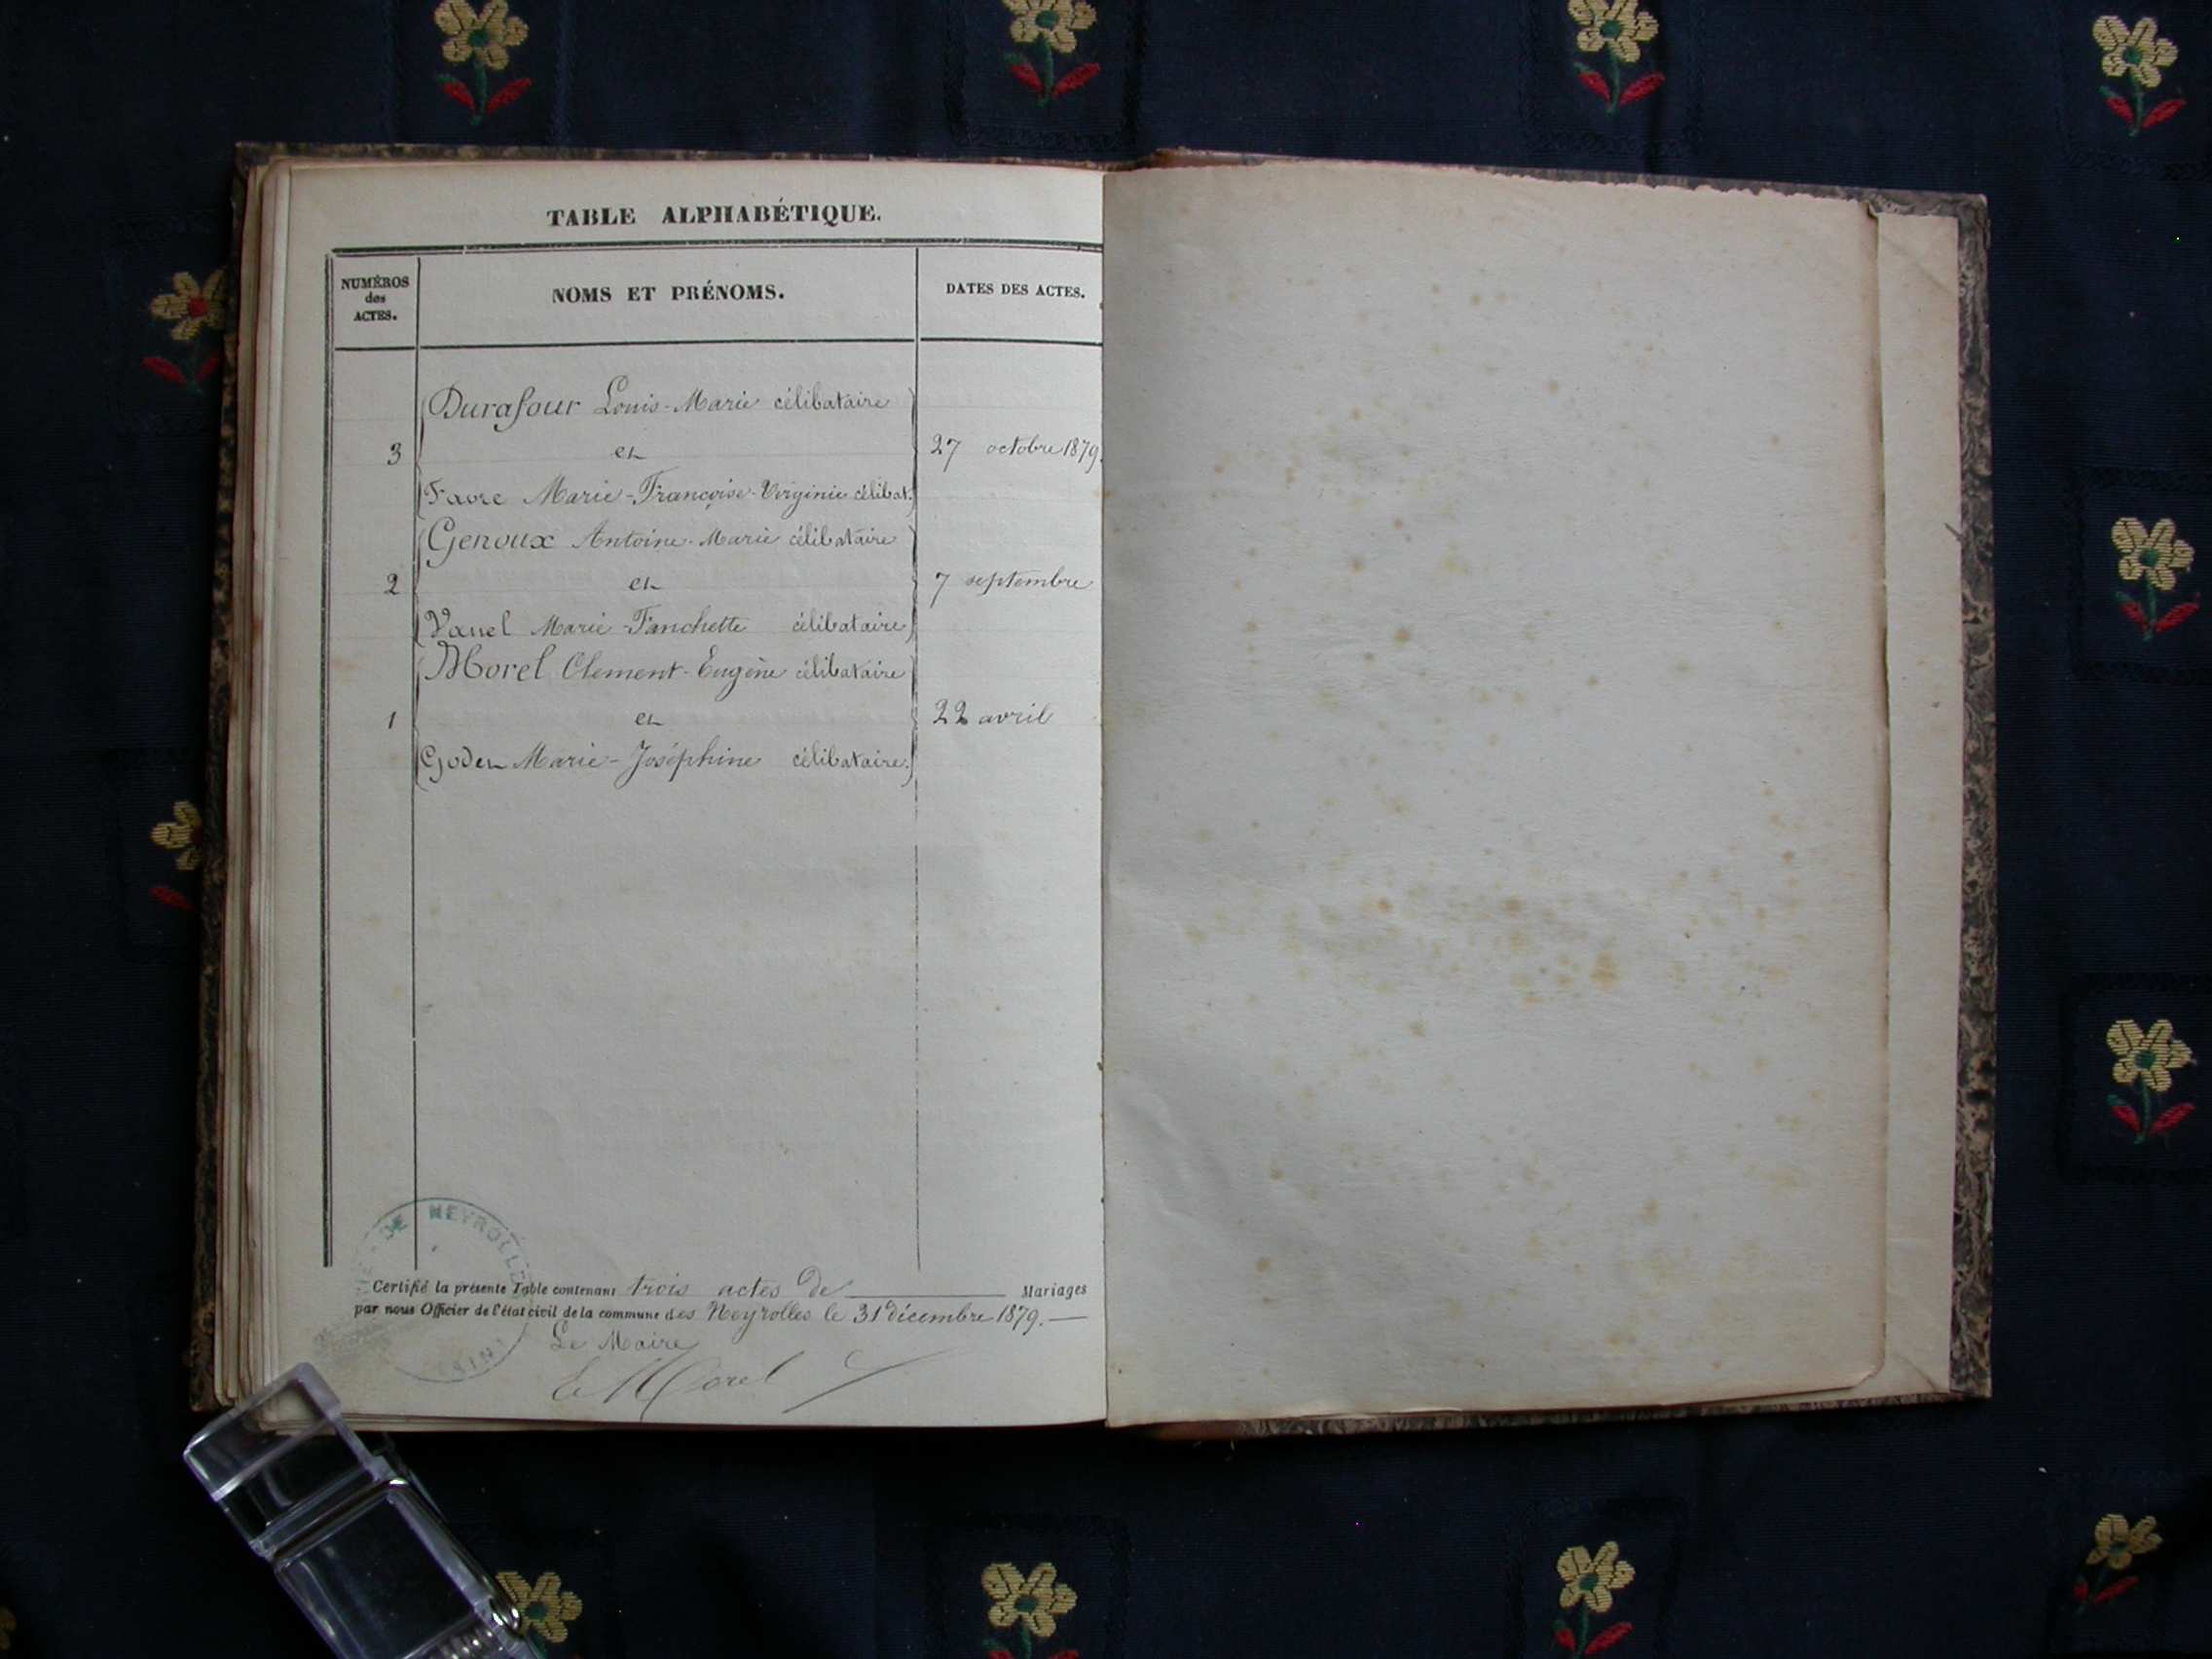 TABLE ALPHABÉTIQUE.
NUMÉROS
des
ACTES.
NOMS ET PRÉNOMS.
DATES DES ACTES.
Durafour Louis-Marie célibataire
3 et 27 octobre 1879.
Favre Marie-Françoise-Virginie célibat.
Genoux Antoine-Marie célibataire
2 et 7 septembre
Vanel Marie-Fanchette célibataire
Morel Clement-Eugène célibataire
1 et 22 avril
Godet Marie-Joséphine célibataire.
DE NEYROLLES
Certifié la présente Table contenant trois actes de Mariages
par nous Officier de l'état civil de la commune des Neyrolles le 31 décembre 1879.
Le Maire
Morel